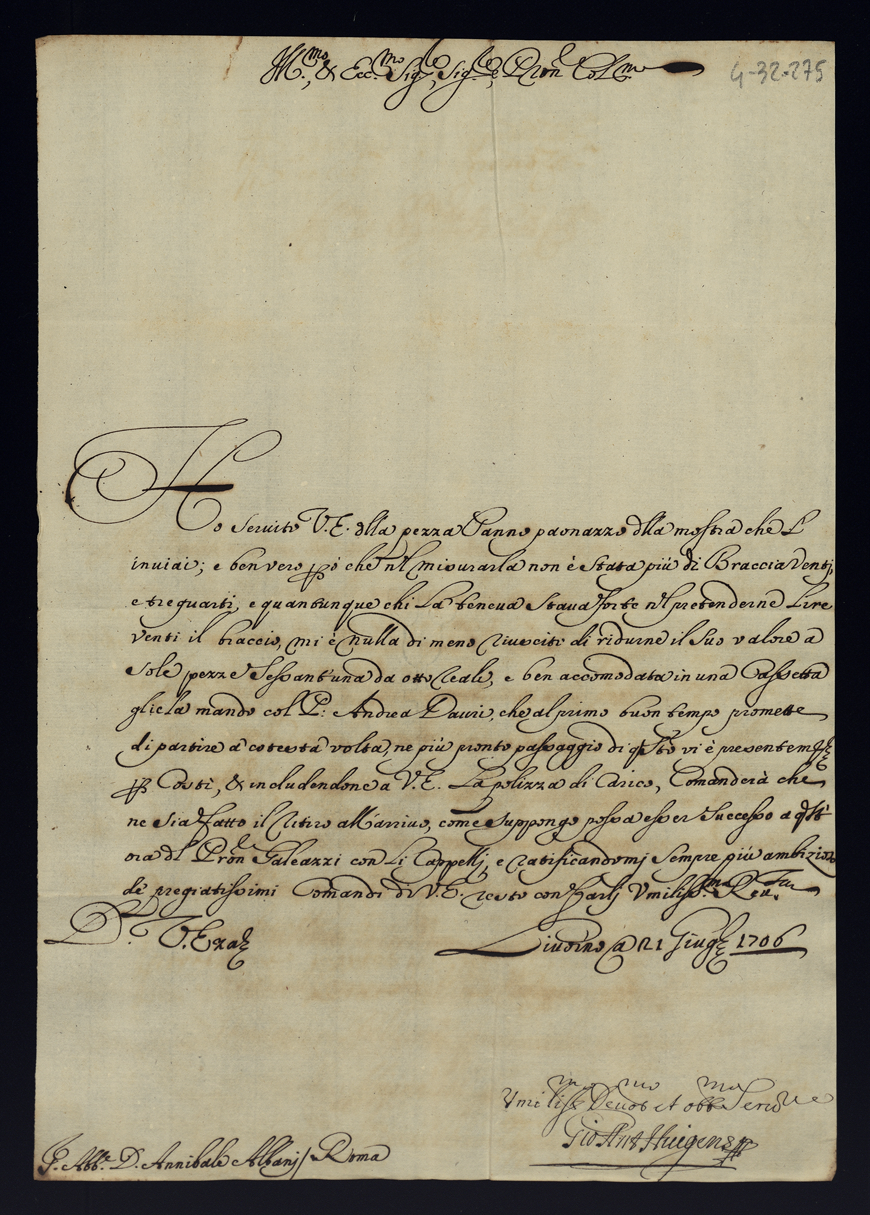 Ill.mo, & Ecc.mo Sig.re, Sig.re, Pron Col.mo
4-32-275
Ho servito V.E. dlla pezza Panno paonazzo dlla mostra che L
inviai; e ben vero però che nl misurarla non è stata più di Braccia Ventj,
e tre quarti, e quantunque chi La teneva stava forte nl pretenderne Lire
venti il braccio, mi è nulla di meno riuscito di ridurne il suo valore a
sole pezze Sessant'una da otto reali, e ben accomodata in una Cassetta
gliela mando col P: Andrea Dauri, che al primo buon tempo promette
di partire a cotesta volta, ne più pronto passaggio di qsto vi è presentem.te
p Costì, & includendone a V.E. La polizza di Carico, Comanderà che
ne sia fatto il ritiro all'arrivo, come suppongo possa esser successo a qst'
ora dl Pron Galeazzi con Li Cappellj, e ratificandomj sempre più ambizioso
de pregiatissimi Comandi di V.E. resto con farlj Umiliss.ma Reu.za
D. V. Ecza
Livorno a 21 Giug.o 1706
Umiliss.mo Deuot.mo et obb.mo Serv.re
Gio Ant Huigens
S. Abb.e D. Annibale Albanj Roma